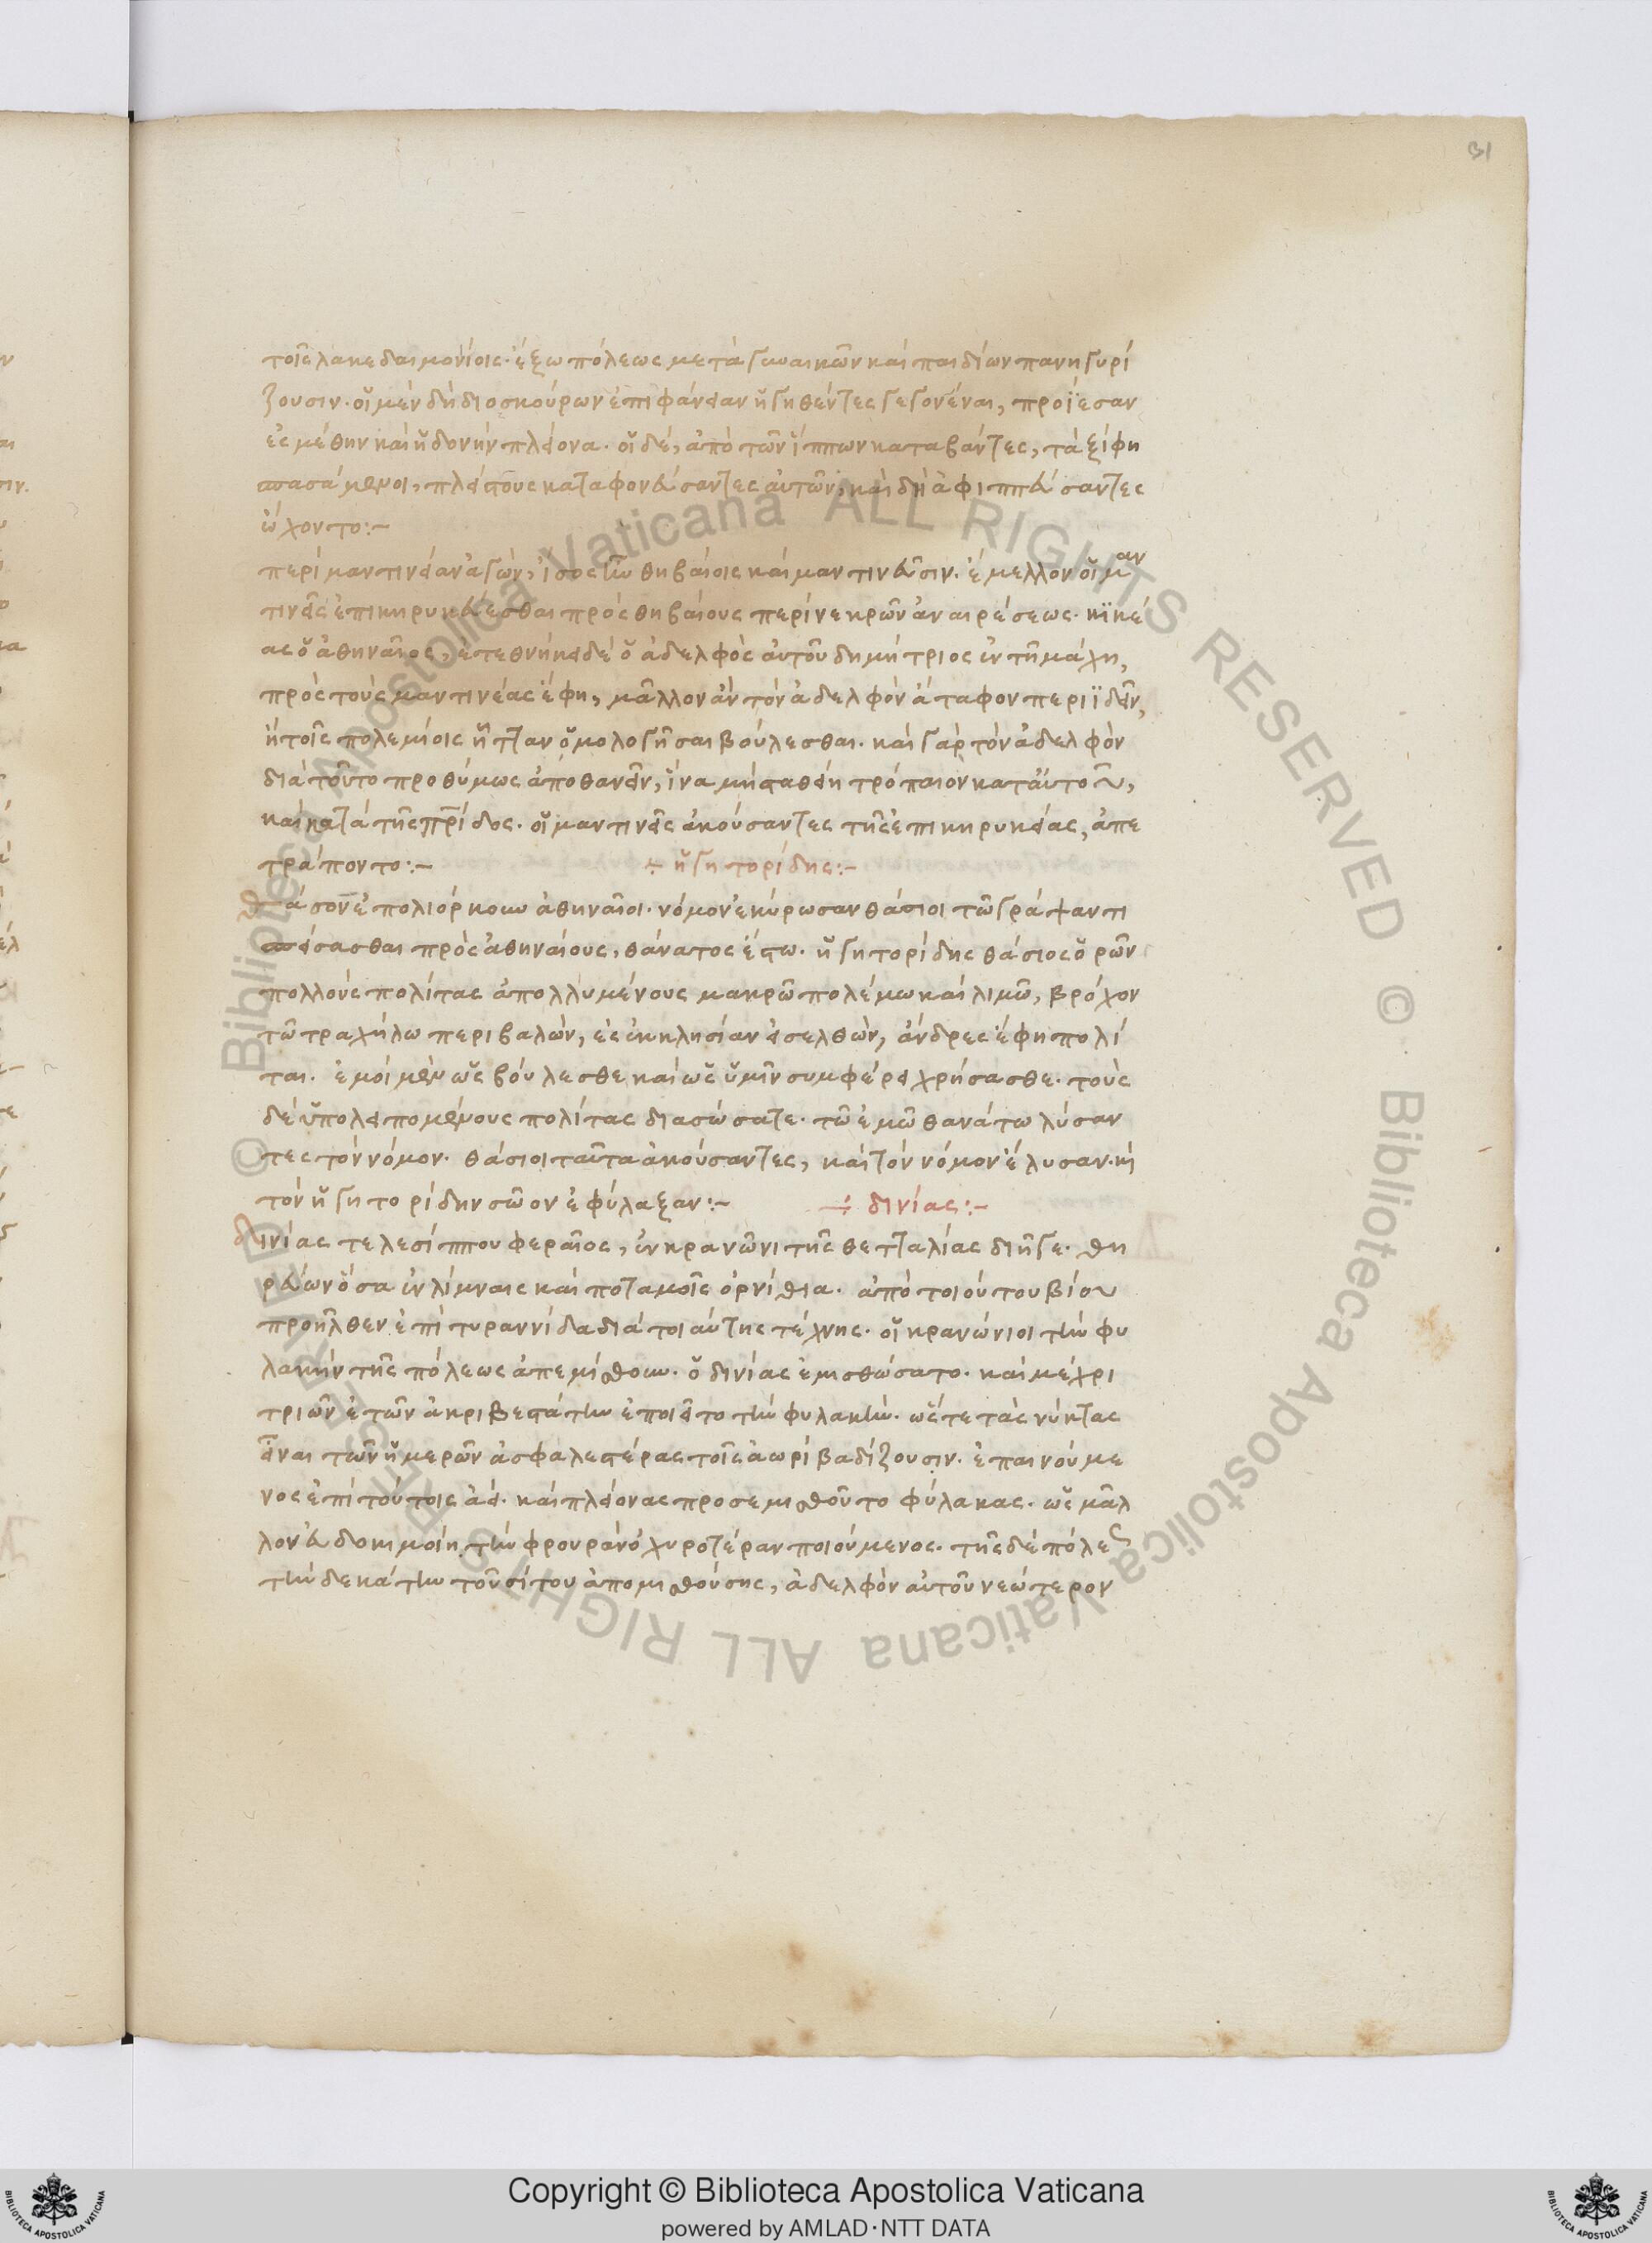 31
τοῖς λακεδαιμονίοις· ἔξω πόλεως μετὰ γυναικῶν καὶ παιδίων πανηγυρί
ζουσιν· οἱ μὲν δὴ διοσκούρων ἐπιφάνειαν ἡγηθέντες γεγονέναι, προΐεσαν
ἐς μέθην καὶ ἡδονὴν πλείονα· οἱ δέ, ἀπὸ τῶν ἵππων καταβάντες, τὰ ξίφη
σπασάμενοι, πλείστους καταφονεύσαντες αὐτῶν, καὶ δὴ ἀφιππεύσαντες
ᾤχοντο:~
περὶ μαντίνειαν ἀγὼν, ἴσος ἦν θηβαίοις καὶ μαντινεῦσιν· ἔμελλον οἱ μαν
τινεῖς ἐπικηρυκεύεσθαι πρὸς θηβαίους περὶ νεκρῶν ἀναιρέσεως· κϊκέ
ας ὁ ἀθηναῖος, ἐτεθνήκει δὲ ὁ ἀδελφὸς αὐτοῦ δημήτριος ἐν τῇ μάχῃ,
πρὸς τοὺς μαντινέας ἔφη, μᾶλλον ἂν τὸν ἀδελφὸν ἄταφον περιϊδεῖν,
ἢ τοῖς πολεμίοις ἧτταν ὁμολογῆσαι βούλεσθαι· καὶ γὰρ τὸν ἀδελφὸν
διὰ τοῦτο προθύμως ἀποθανεῖν, ἵνα μὴ σταθείη τρόπαιον κατ' αὐτοῦ,
καὶ κατὰ τῆς πρίδος· οἱ μαντινεῖς ἀκούσαντες τῆς ἐπικηρυκείας, ἀπε
τράποντο:~ ÷ ἡγητορίδης:~
Θάσον ἐπολιόρκουν ἀθηναῖοι· νόμον ἐκύρωσαν θάσιοι τῷ γράψαντι
σπείσασθαι πρὸς ἀθηναίους, θάνατος ἔστω· ἡγητορίδης θάσιος ὁρῶν
πολλοὺς πολίτας ἀπολλυμένους μακρῷ πολέμω καὶ λιμῷ, βρόχον
τῷ τραχήλω περιβαλὼν, ἐς ἐκκλησίαν εἰσελθὼν, ἄνδρες ἔφη πολί
ται· ἐμοὶ μὲν ὡς βούλεσθε καὶ ὡς ὑμῖν συμφέρει χρήσασθε· τοὺς
δὲ ὑπολειπομένους πολίτας διασώσατε· τῷ ἐμῷ θανάτω λύσαν
τες τὸν νόμον· θάσιοι ταῦτα ἀκούσαντες, καὶ τὸν νόμον ἔλυσαν· καὶ
τὸν ἡγητορίδην σῶον ἐφύλαξαν:~ ÷ δινίας:~
δινίας τελεσίππου φεραῖος, ἐν κρανῶνι τῆς θετταλίας διῆγε· θη
ρεύων ὅσα ἐν λίμναις καὶ ποταμοῖς ὀρνίθια· ἀπὸ τοιούτου βίου
προῆλθεν ἐπὶ τυραννίδα διὰ τοιαύτης τέχνης· οἱ κρανώνιοι τὴν φυ
λακὴν τῆς πόλεως ἀπεμίσθουν· ὁ δινίας ἐμισθώσατο· καὶ μέχρι
τριῶν ἐτῶν ἀκριβεστάτην ἐποιεῖτο τὴν φυλακὴν· ὥστε τὰς νύκτας
εἶναι τῶν ἡμερῶν ἀσφαλεστέρας τοῖς ἀωρὶ βαδίζουσιν· ἐπαινούμε
νος ἐπὶ τούτοις ἀεί· καὶ πλείονας προσεμισθοῦτο φύλακας· ὡς μᾶλ
λον εὐδοκιμοίη τὴν φρουρὰν ὀχυροτέραν ποιούμενος· τῆς δὲ πόλεως
τὴν δεκάτην τοῦ σίτου ἀπομισθούσης, ἀδελφὸν αὐτοῦ νεώτερον
© Biblioteca Apostolica Vaticana ALL RIGHTS RESERVED © Biblioteca Apostolica Vaticana ALL RIGHTS RESERVED
Copyright © Biblioteca Apostolica Vaticana
powered by AMLAD·NTT DATA